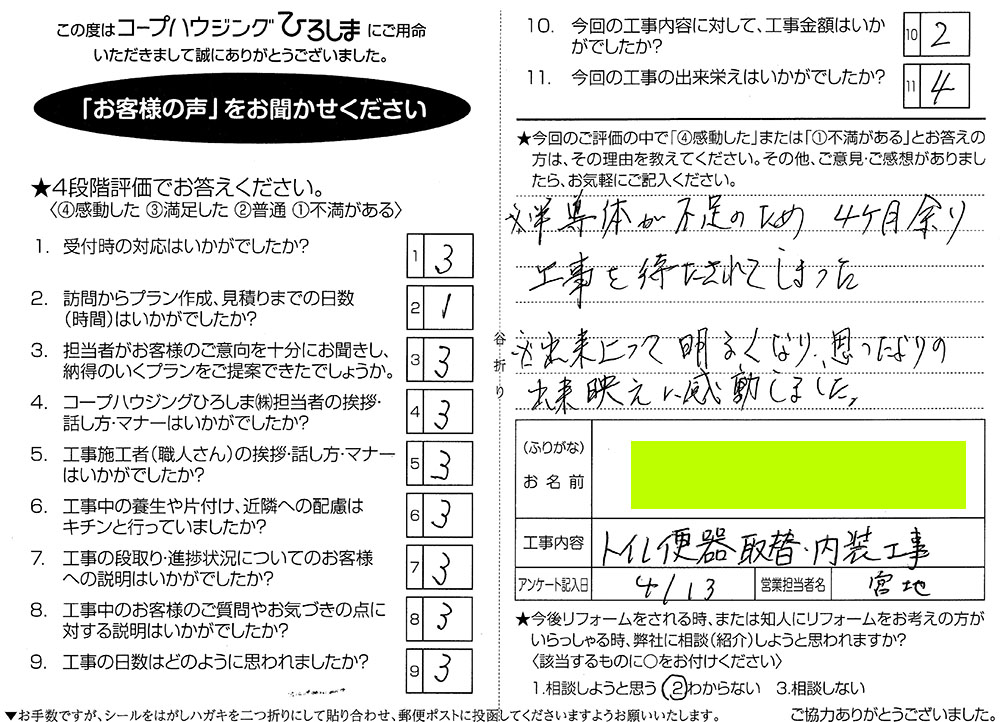 この度はコープハウジングひろしまにご用命
いただきまして誠にありがとうございました。
「お客様の声」をお聞かせください
★4段階評価でお答えください。
〈④感動した ③満足した ②普通 ①不満がある〉
1. 受付時の対応はいかがでしたか?
1 3
2. 訪問からプラン作成、見積りまでの日数
(時間)はいかがでしたか?
2 1
3. 担当者がお客様のご意向を十分にお聞きし、
納得のいくプランをご提案できたでしょうか。
3 3
4. コープハウジングひろしま㈱担当者の挨拶・
話し方・マナーはいかがでしたか?
4 3
5. 工事施工者(職人さん)の挨拶・話し方・マナー
はいかがでしたか?
5 3
6. 工事中の養生や片付け、近隣への配慮は
キチンと行っていましたか?
6 3
7. 工事の段取り・進捗状況についてのお客様
への説明はいかがでしたか?
7 3
8. 工事中のお客様のご質問やお気づきの点に
対する説明はいかがでしたか?
8 3
9. 工事の日数はどのように思われましたか?
9 3
谷折り
10. 今回の工事内容に対して、工事金額はいか
がでしたか?
10 2
11. 今回の工事の出来栄えはいかがでしたか?
11 4
★今回のご評価の中で「④感動した」または「①不満がある」とお答えの
方は、その理由を教えてください。その他、ご意見・ご感想がありまし
たら、お気軽にご記入ください。
※半導体が不足のため 4ケ月余り
工事を待たされてしまった
※出来上って明るくなり、思ったよりの
出来映えに感動しました。
(ふりがな)
お名前
工事内容 トイレ便器取替・内装工事
アンケート記入日 4/13 営業担当者名 宮地
★今後リフォームをされる時、または知人にリフォームをお考えの方が
いらっしゃる時、弊社に相談(紹介)しようと思われますか?
〈該当するものに○をお付けください〉
1.相談しようと思う 2.わからない 3.相談しない
▼お手数ですが、シールをはがしハガキを二つ折りにして貼り合わせ、郵便ポストに投函してくださいますようお願いいたします。 ご協力ありがとうございました。